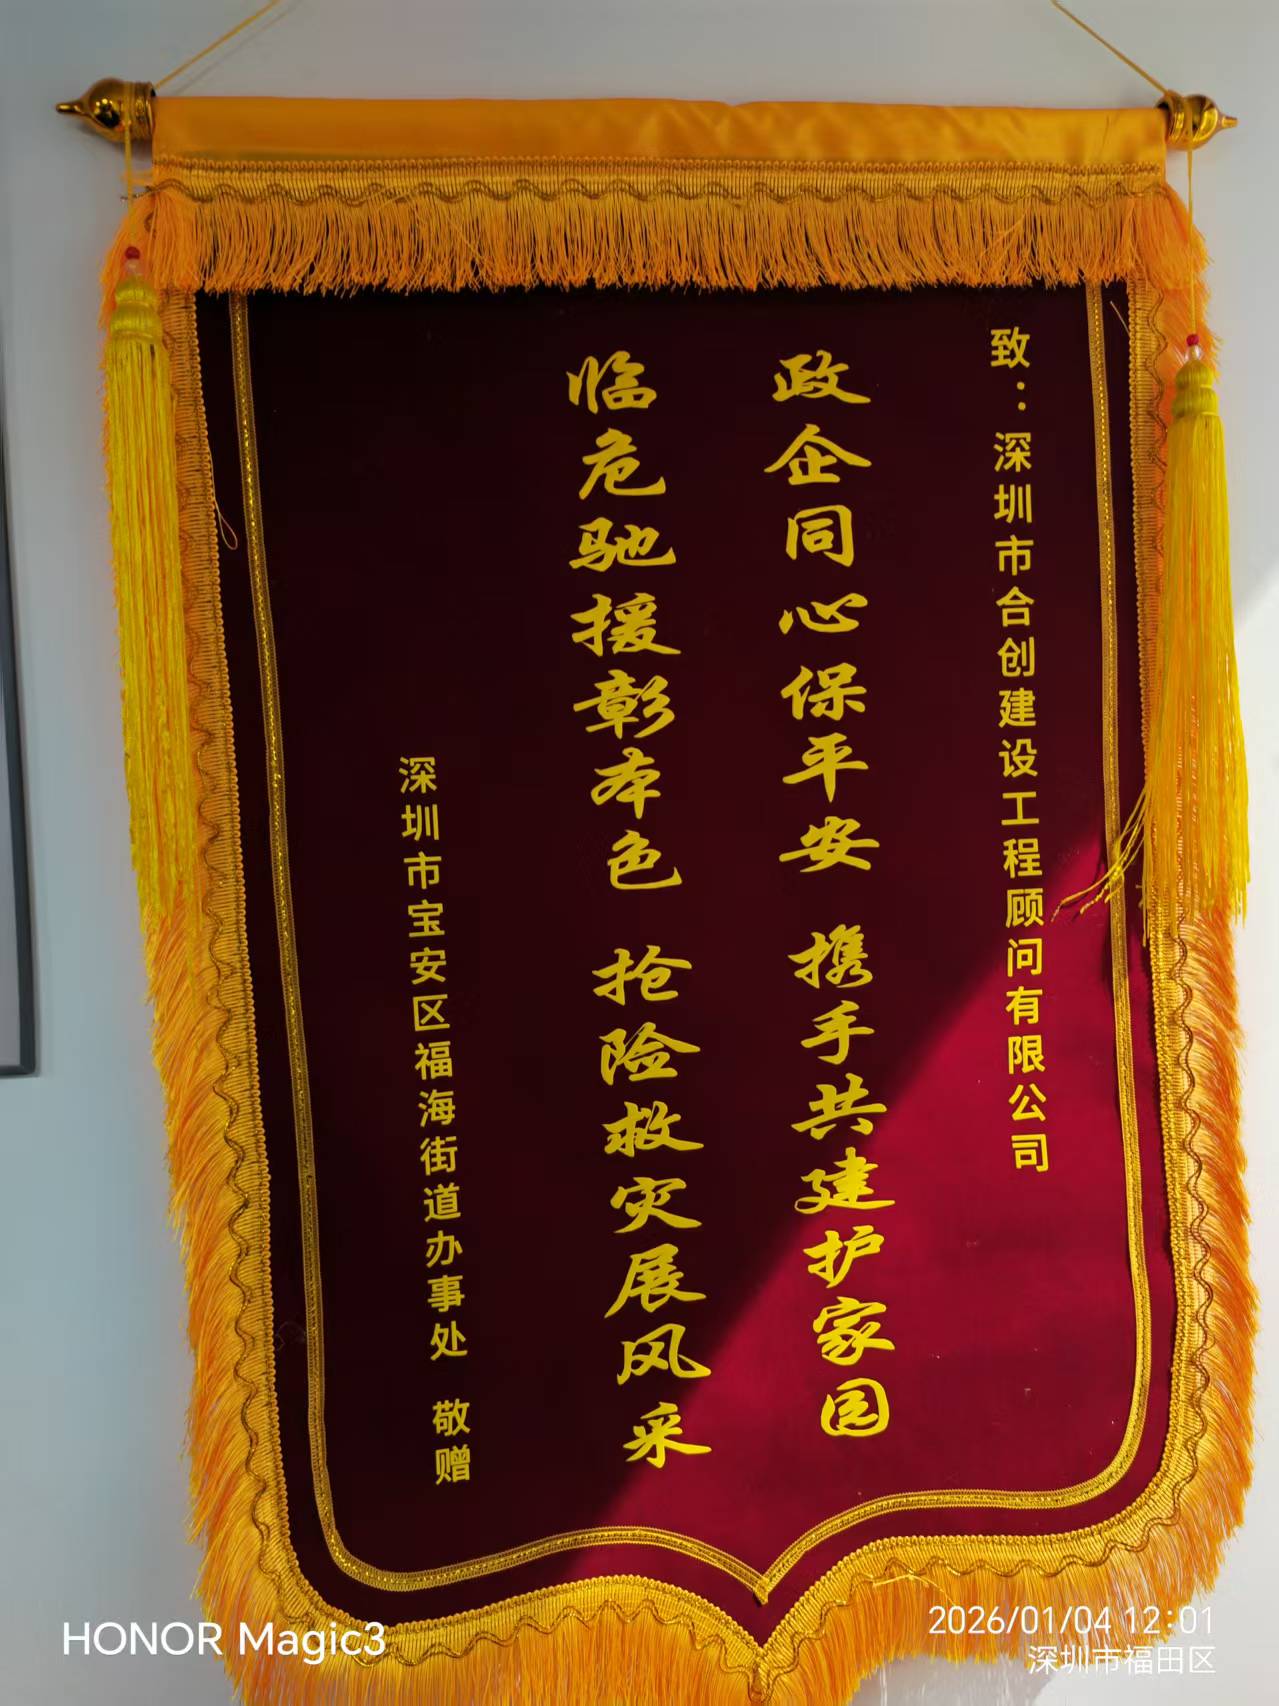 致：深圳市合创建设工程顾问有限公司
政企同心保平安 携手共建护家园
临危驰援彰本色 抢险救灾展风采
深圳市宝安区福海街道办事处 敬赠
HONOR Magic3
2026/01/04 12:01
深圳市福田区